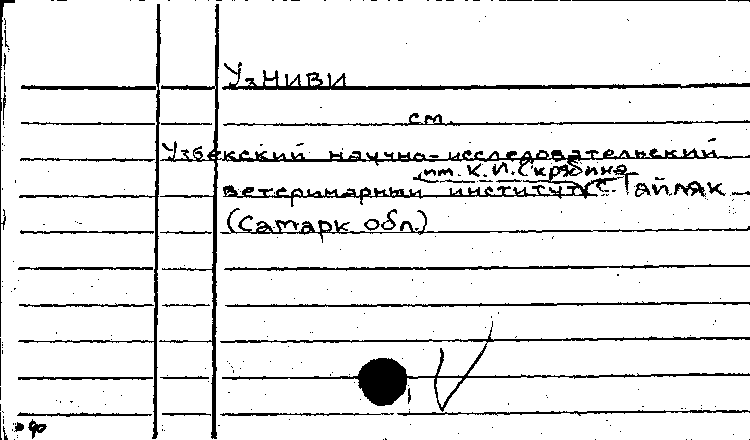 УзНИВИ
см.
Узбекский научно-исследовательский
им. К.И.Скрябина
ветеринарный институт с. Тайляк
(Самарк обл.)